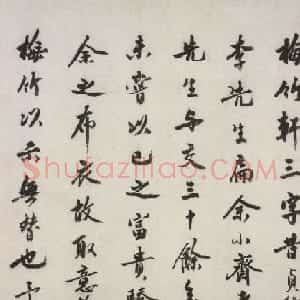 梅竹軒三字昔貞
李先生扁余小齋
先生与交三十餘年
未嘗以己之富貴驕
余之布衣故取意
梅竹以示無替也
Shufaziliao.com